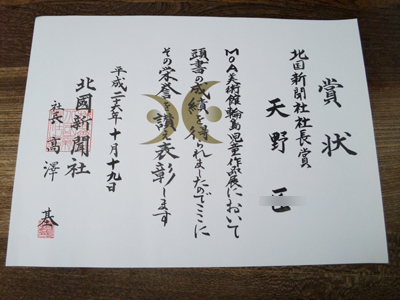 賞状
北国新聞社社長賞
天野
MOA美術館輪島児童作品展において
頭書の成績を得られましたのでここに
その栄誉を讃え表彰します
平成二十六年十月十九日
北國新聞社
社長 高澤 基